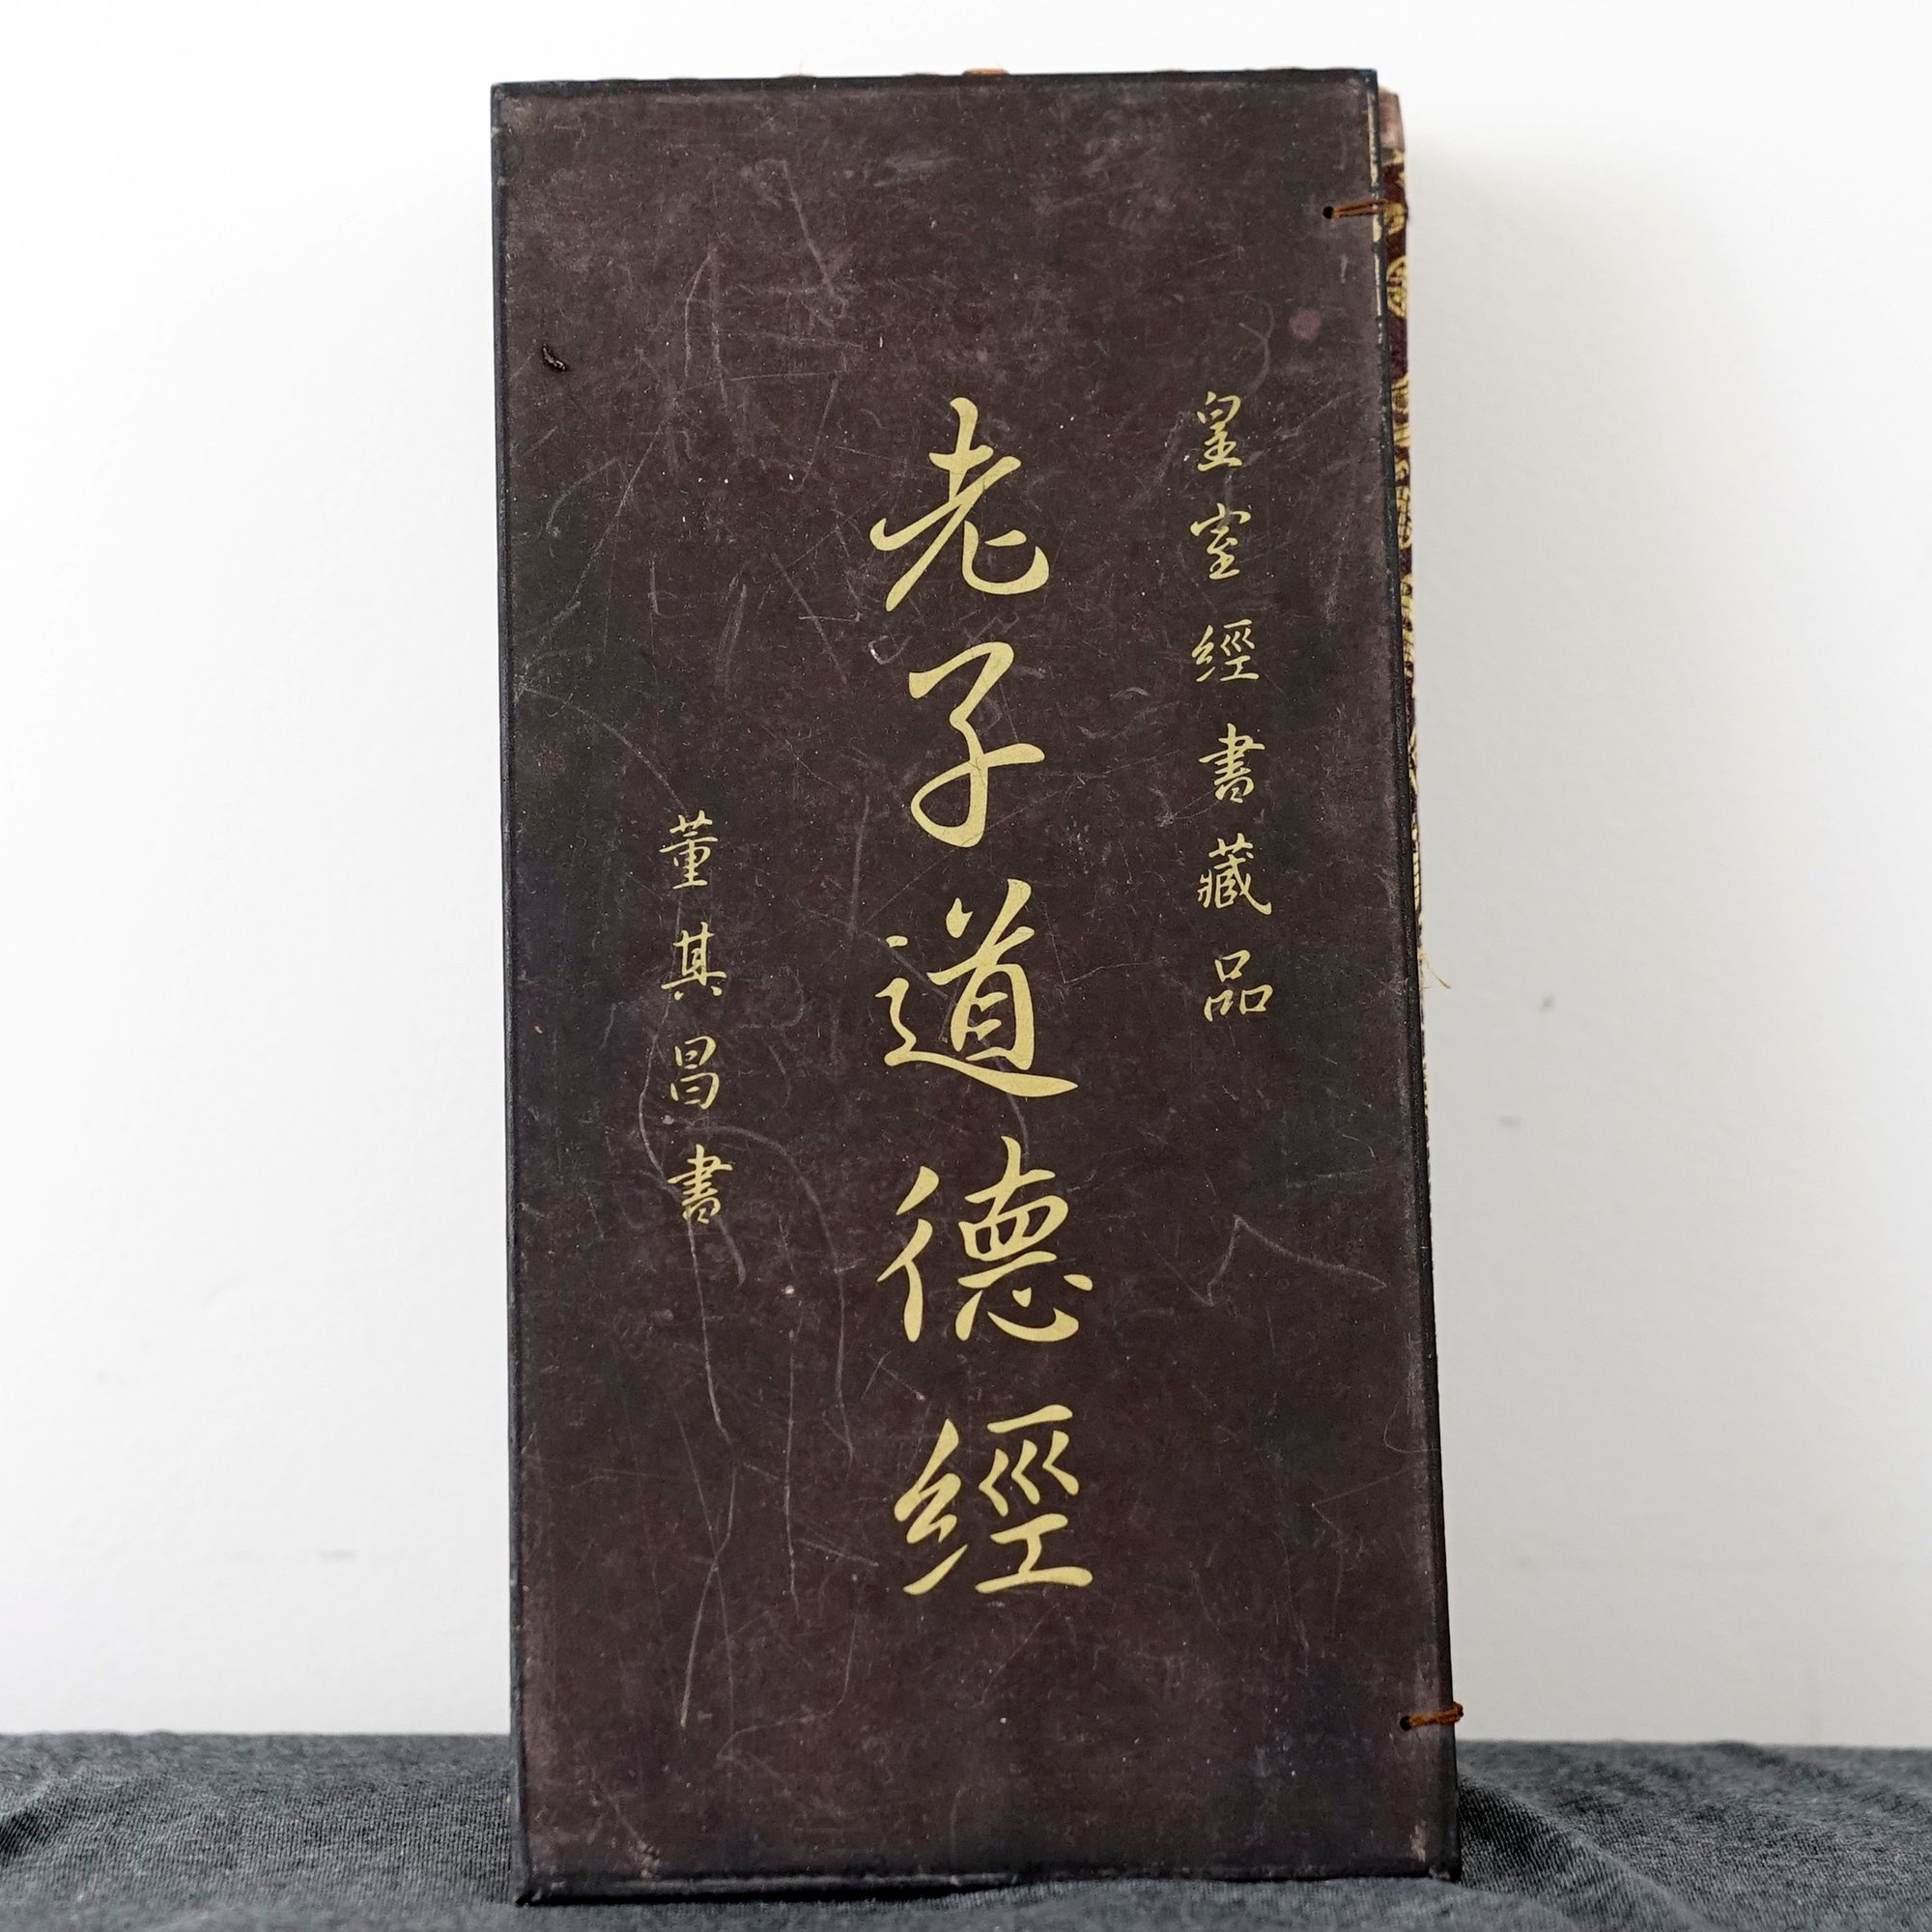 皇室經書藏品
老子道德經
董其昌書